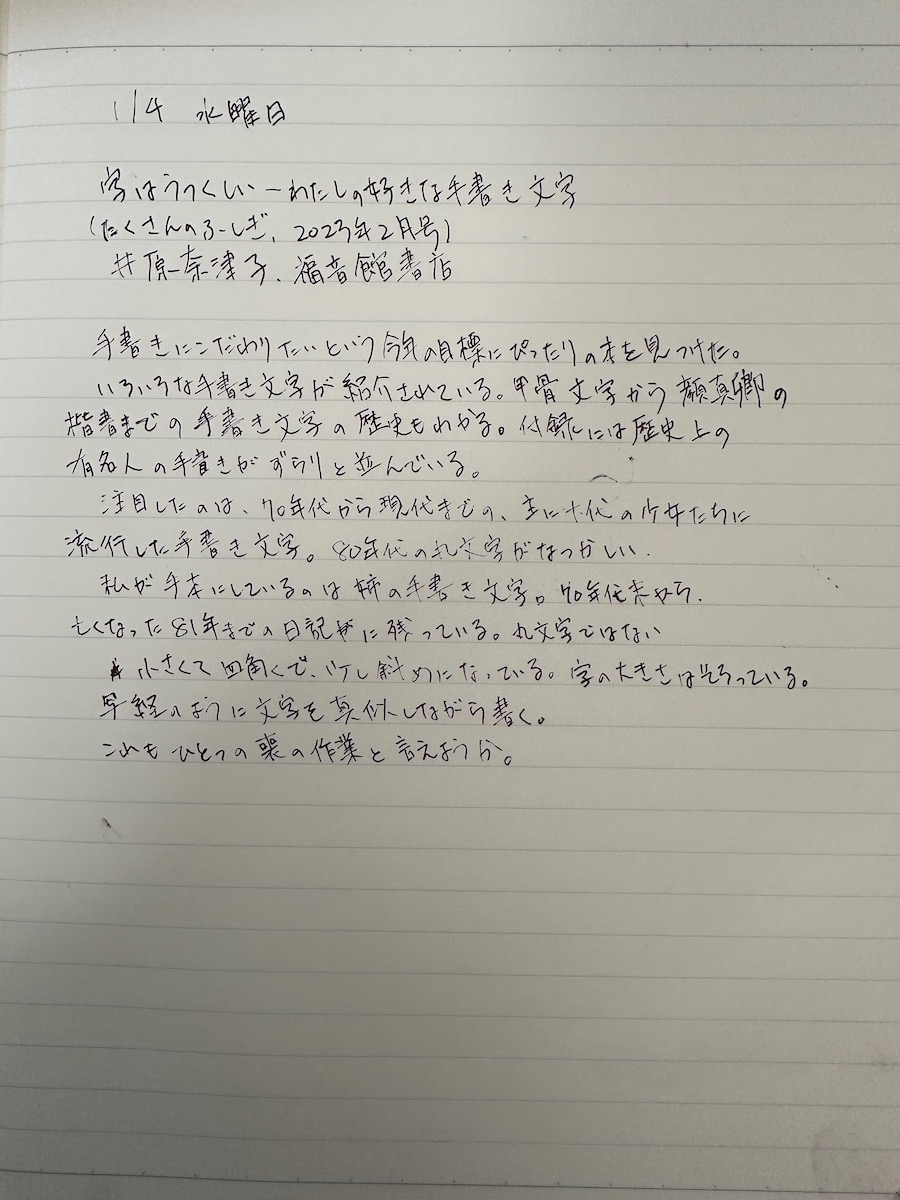 1/4 水曜日
字はうつくしい－わたしの好きな手書き文字
（たくさんのふしぎ、2023年2月号）
井原奈津子、福音館書店
手書きにこだわりたいという今年の目標にぴったりの本を見つけた。
いろいろな手書き文字が紹介されている。甲骨文字から顔真卿の
楷書までの手書き文字の歴史もわかる。付録には歴史上の
有名人の手書きがずらりと並んでいる。
注目したのは、70年代から現代までの、主に十代の少女たちに
流行した手書き文字。80年代の丸文字がなつかしい。
私が手本にしているのは姉の手書き文字。70年代末から、
亡くなった81年までの日記に残っている。丸文字ではない
小さくて四角くて、少し斜めになっている。字の大きさはそろっている。
写経のように文字を真似しながら書く。
これもひとつの喪の作業と言えようか。